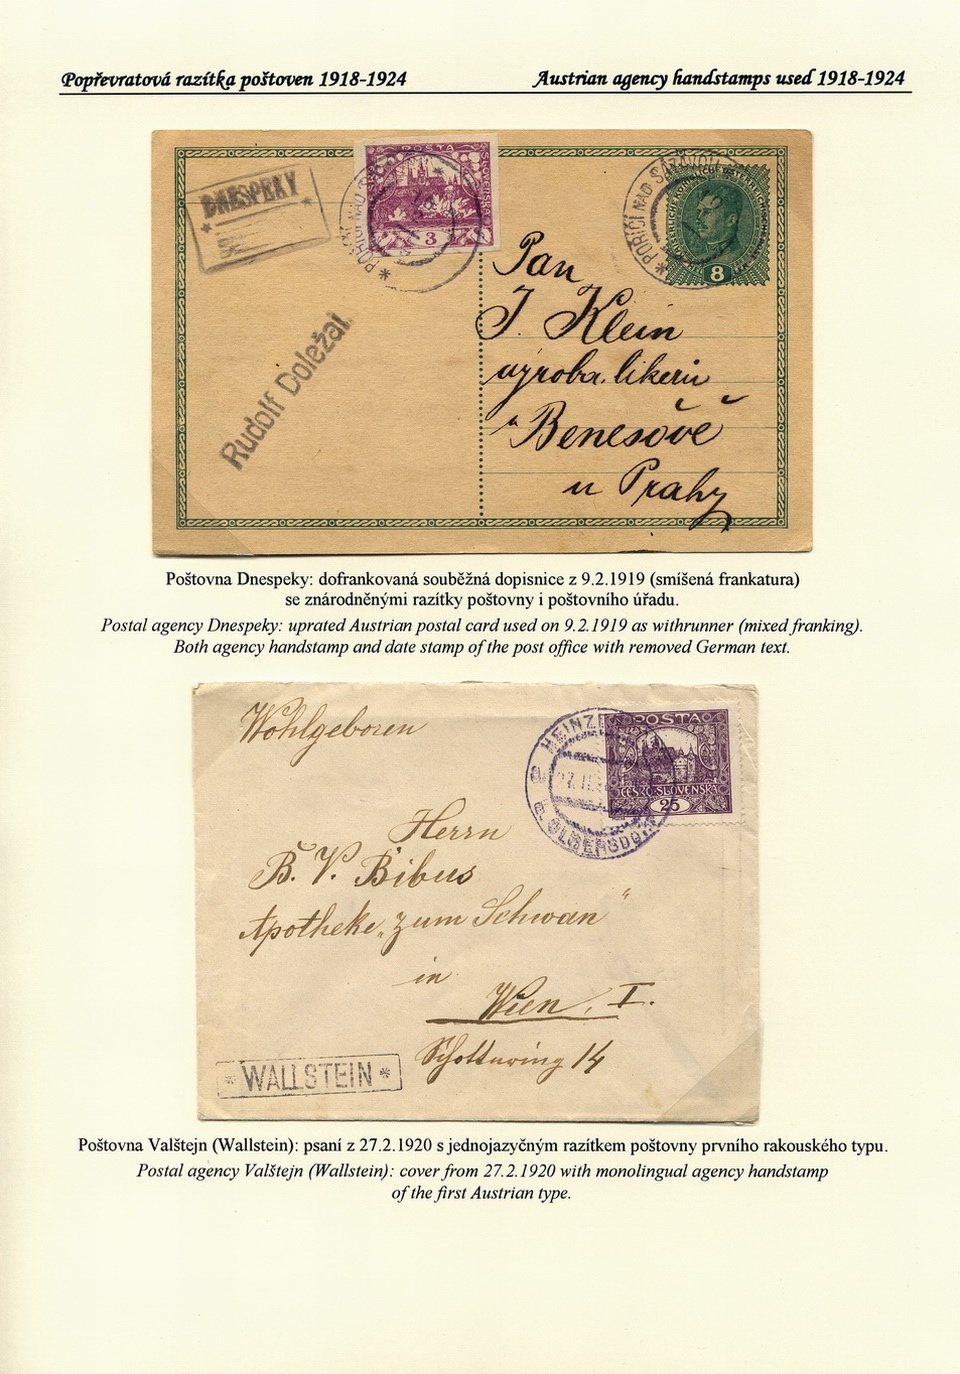 Popřevratová razítka poštoven 1918-1924
Austrian agency handstamps used 1918-1924
DNESPEKY
POŠTA
ČESKO
SLOVENSKÁ
3
* POŘÍČÍ NAD
* POŘÍČÍ NAD SÁZAVOU
8
Rudolf Doležal
Pan
J. Klein
výroba likérů
v Benešově
u Prahy
Poštovna Dnespeky: dofrankovaná souběžná dopisnice z 9.2.1919 (smíšená frankatura)
se znárodněnými razítky poštovny i poštovního úřadu.
Postal agency Dnespeky: uprated Austrian postal card used on 9.2.1919 as withrunner (mixed franking).
Both agency handstamp and date stamp of the post office with removed German text.
Wohlgeboren
POŠTA
ČESKO-SLOVENSKÁ
25
27.II.
OLBERSDORF
Herrn
B. V. Bibus
Apotheke „zum Schwan“
in
Wien, I.
Schottenring 14
* WALLSTEIN *
Poštovna Valštejn (Wallstein): psaní z 27.2.1920 s jednojazyčným razítkem poštovny prvního rakouského typu.
Postal agency Valštejn (Wallstein): cover from 27.2.1920 with monolingual agency handstamp
of the first Austrian type.